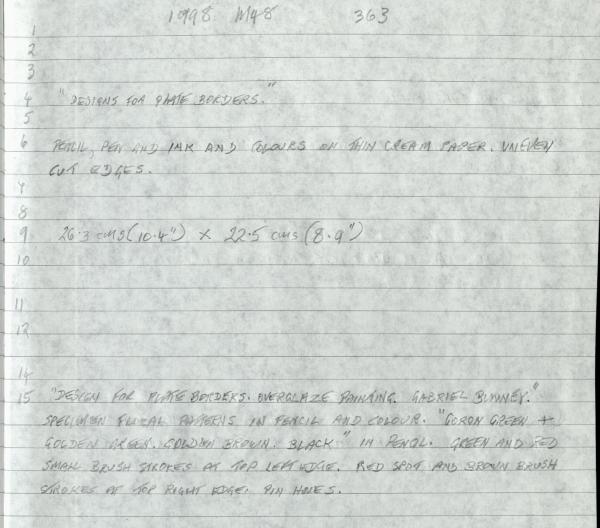 1998 M48 363
1
2
3
4 "DESIGNS FOR PLATE BORDERS."
5
6 PENCIL, PEN AND INK AND COLOURS ON THIN CREAM PAPER. UNEVEN
CUT EDGES.
7
8
9 26.3 cms (10.4") X 22.5 cms (8.9")
10
11
12
14
15 "DESIGN FOR PLATE BORDERS. OVERGLAZE PAINTING. GABRIEL BUNNEY."
SPECIMEN FLORAL PATTERNS IN PENCIL AND COLOUR. "GORON GREEN +
GOLDEN GREEN. GOLDEN BROWN. BLACK" IN PENCIL. GREEN AND RED
SMALL BRUSH STROKES AT TOP LEFT EDGE. RED SPOT AND BROWN BRUSH
STROKES AT TOP RIGHT EDGE. PIN HOLES.